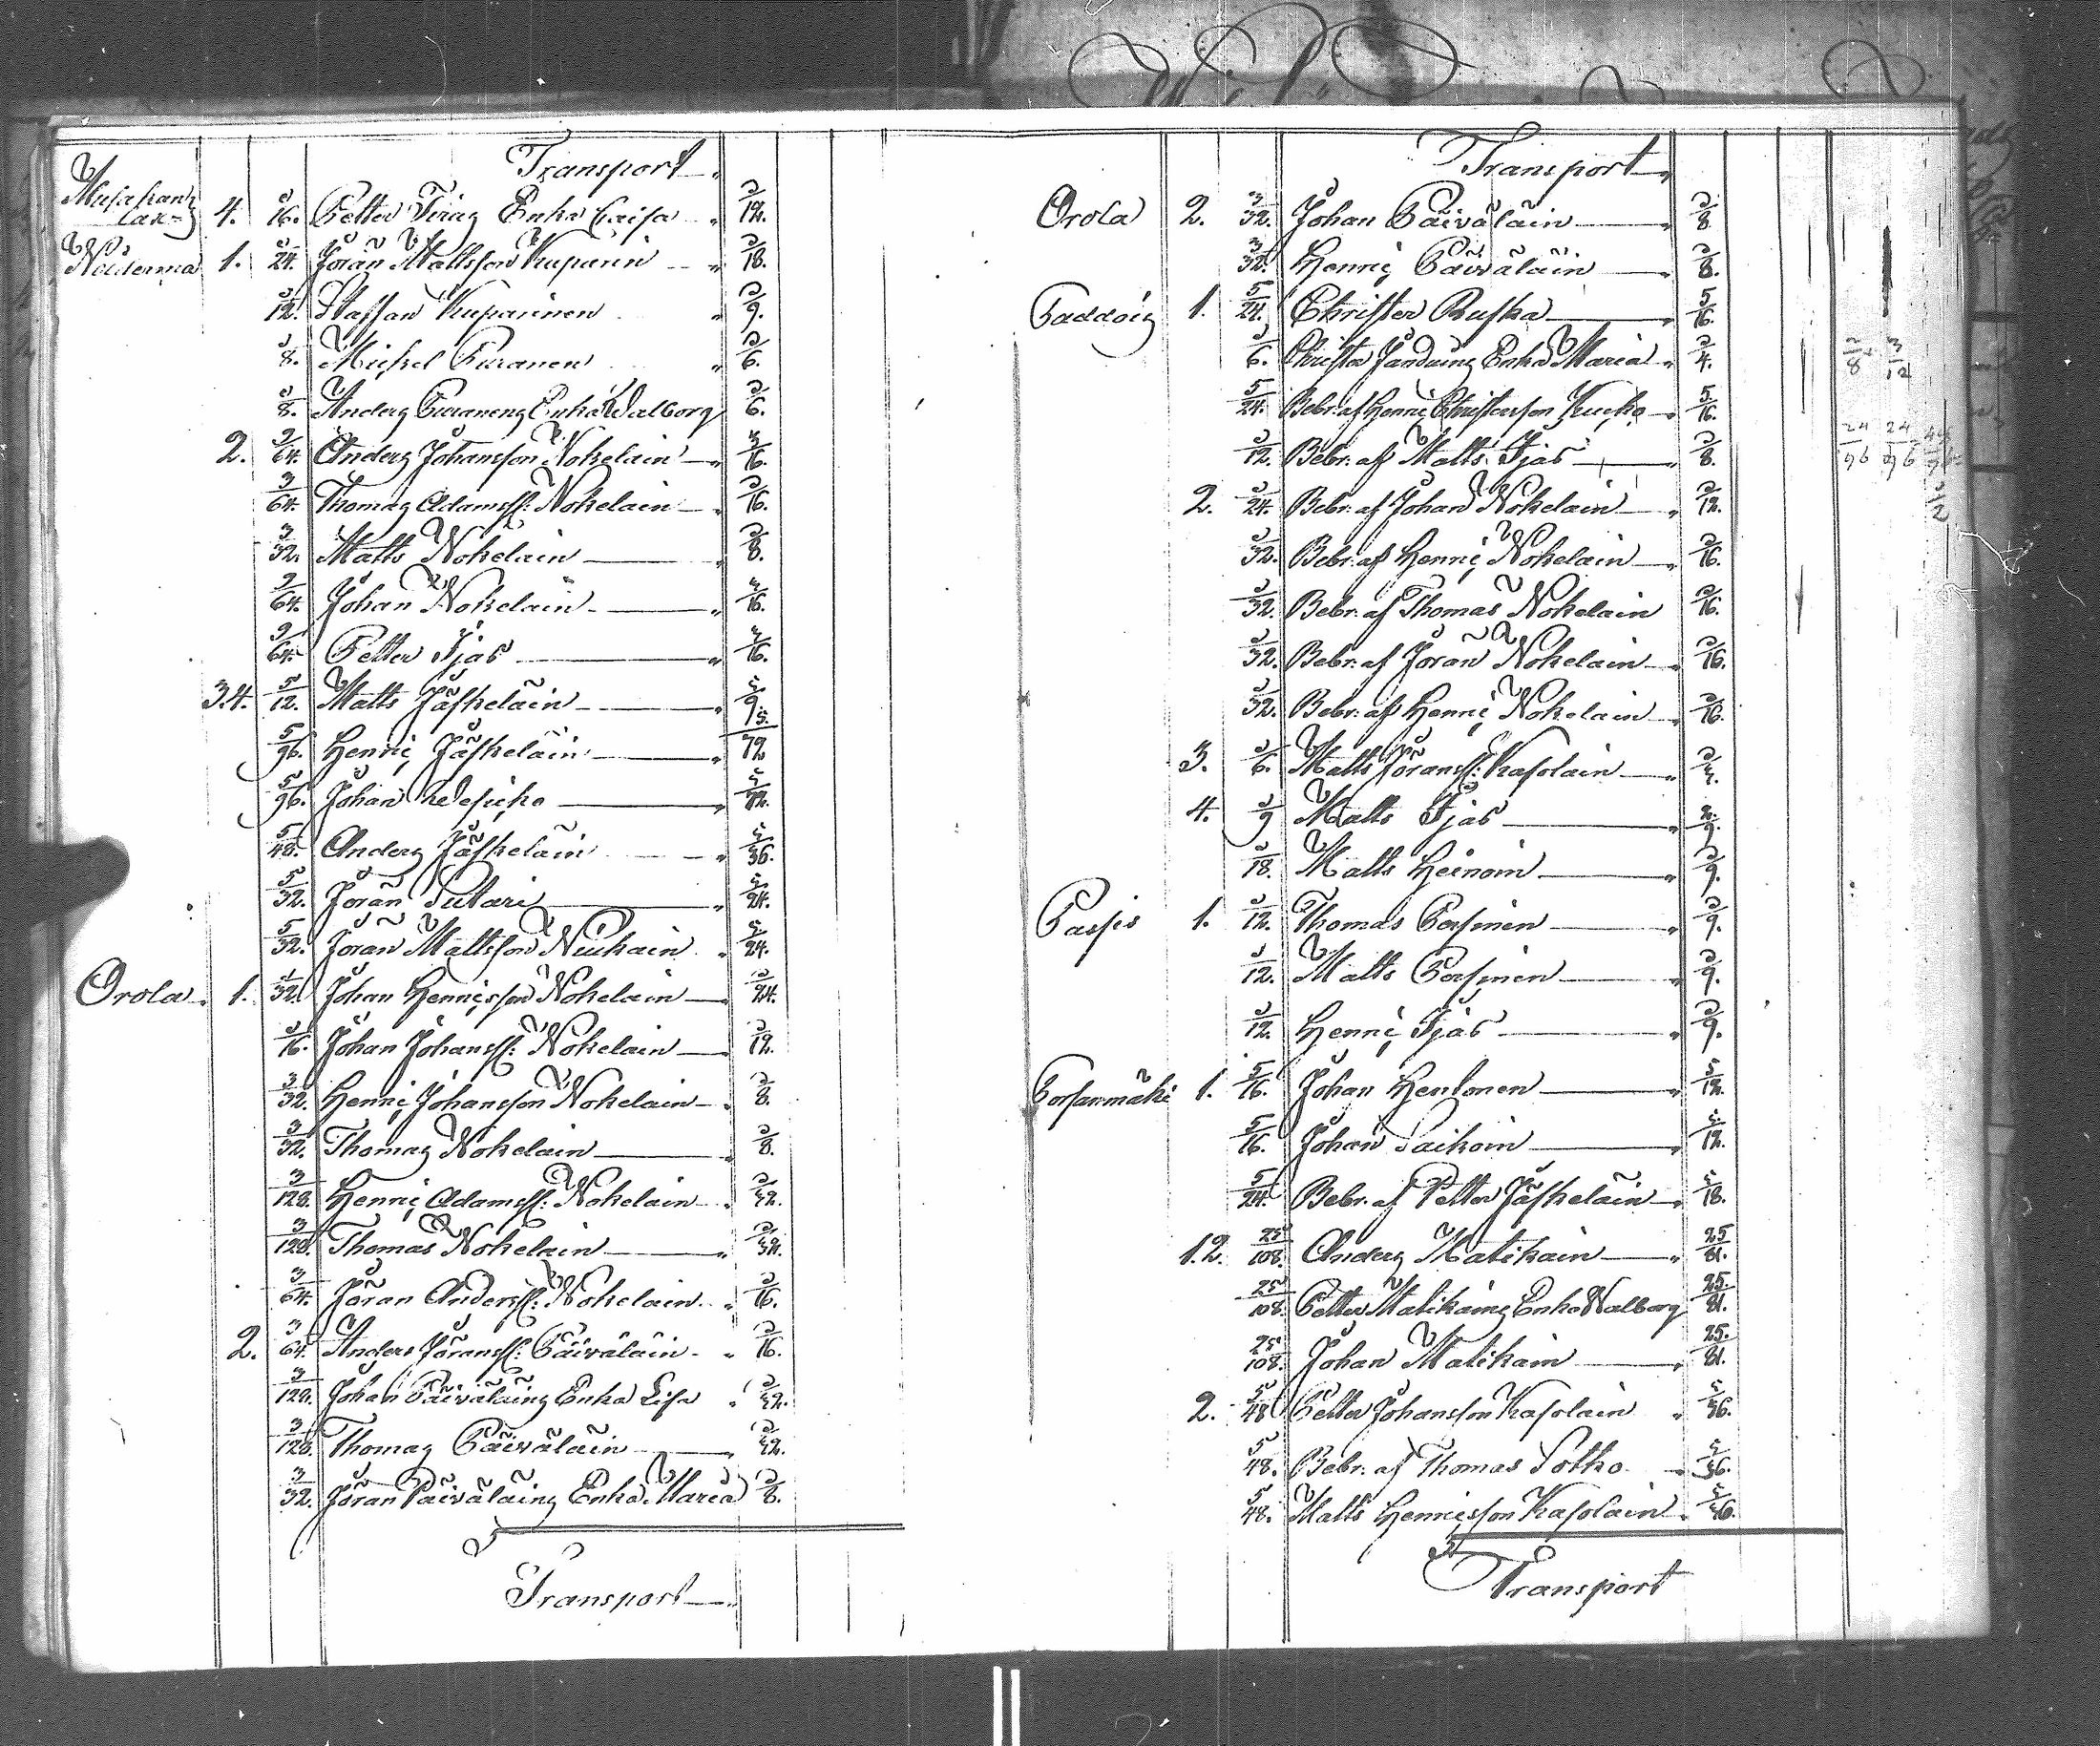 Transport
4. 1/16. Petter Enka Caisa 1/12.
1. 1/24. Jöran Mattsson Kuparin 1/18.
1/12. Staffan Kuparinen 1/9.
1/8. Michel Puranen 1/6.
1/8. Anders Puranens Enka Walborg 1/6.
2. 9/64. Anders Johansson Nokelain 3/16.
3/64. Thomas Adamss: Nokelain 1/16.
3/32. Matts Nokelain 1/8.
9/64. Johan Nokelain 3/16.
9/64. Petter Ijäs 3/16.
3.4. 5/12. Matts Jäskeläin 5/9.
5/96. Henric Jäskeläin 5/72
5/96. Johan 5/72.
5/48. Anders Jäskeläin 5/36.
5/32. Jöran 5/24.
5/32. Jöran Mattsson 5/24.
Orola 1. 1/32. Johan Henricsson Nokelain 1/24.
1/16. Johan Johanss: Nokelain 1/12.
3/32. Henric Johansson Nokelain 1/8.
3/32. Thomas Nokelain 1/8.
3/128. Henric Adamss: Nokelain 1/32.
3/128. Thomas Nokelain 1/32.
3/64. Jöran Anderss: Nokelain 1/16.
2. 3/64. Anders Jöranss: Päiväläin 1/16.
3/128. Johan Päiväläins Enka Lisa 1/32.
3/128. Thomas Päiväläin 1/32.
3/32. Jöran Päiväläins Enka Maria 1/8.
Transport
Transport
Orola 2. 3/32. Johan Päiväläin 1/8.
3/32. Henric Päiväläin 1/8.
1. 5/24. Christer Ruska 5/16.
1/6. Christer Enka Maria 1/4.
5/24. Bebr: af Henric Christersson 5/16.
1/12. Bebr: af Matts Ijäs 1/8.
2. 1/24. Bebr: af Johan Nokelain 1/12.
1/32. Bebr: af Henric Nokelain 1/16.
1/32. Bebr: af Thomas Nokelain 1/16.
1/32. Bebr: af Jöran Nokelain 1/16.
1/32. Bebr: af Henric Nokelain 1/16.
3. 1/6. Matts Jöranss: Kasolain
4. 1/9 Matts Ijäs 2/9.
1/18. Matts Heinoin 1/9.
1. 1/12. Thomas 1/9.
1/12. Matts 1/9.
1/12. Henric Ijäs 1/9.
1. 5/16. Johan Hentonen 5/12.
5/16. Johan Paikoin 5/12.
5/24. Bebr. af Petter Jäskeläin 5/18.
1.2. 25/108. Anders Matikain 25/81.
25/108. Petter Matikains Enka Walborg 25/81.
25/108. Johan Matikain 25/81.
2. 5/48. Petter Johansson Kasolain 5/36.
5/48. Bebr: af Thomas 5/36.
5/48. Matts Henricsson Kasolain 5/36.
Transport